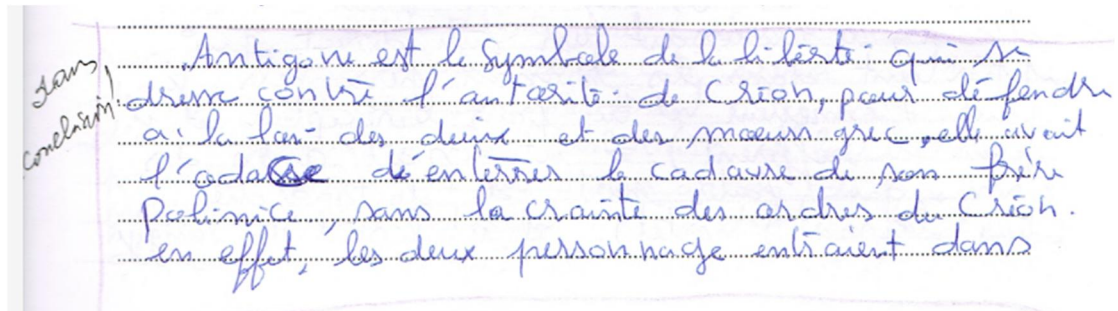 sans
conclusion!
Antigone est le symbole de la liberté qui se
dresse contre l'autorité de Créon, pour défendre
a la loi des deux et des mœurs grec, elle avait
l'odace dé enterrer le cadavre de son frère
Polinice, sans la crainte des ordres du Créon.
en effet, les deux personnage entraient dans